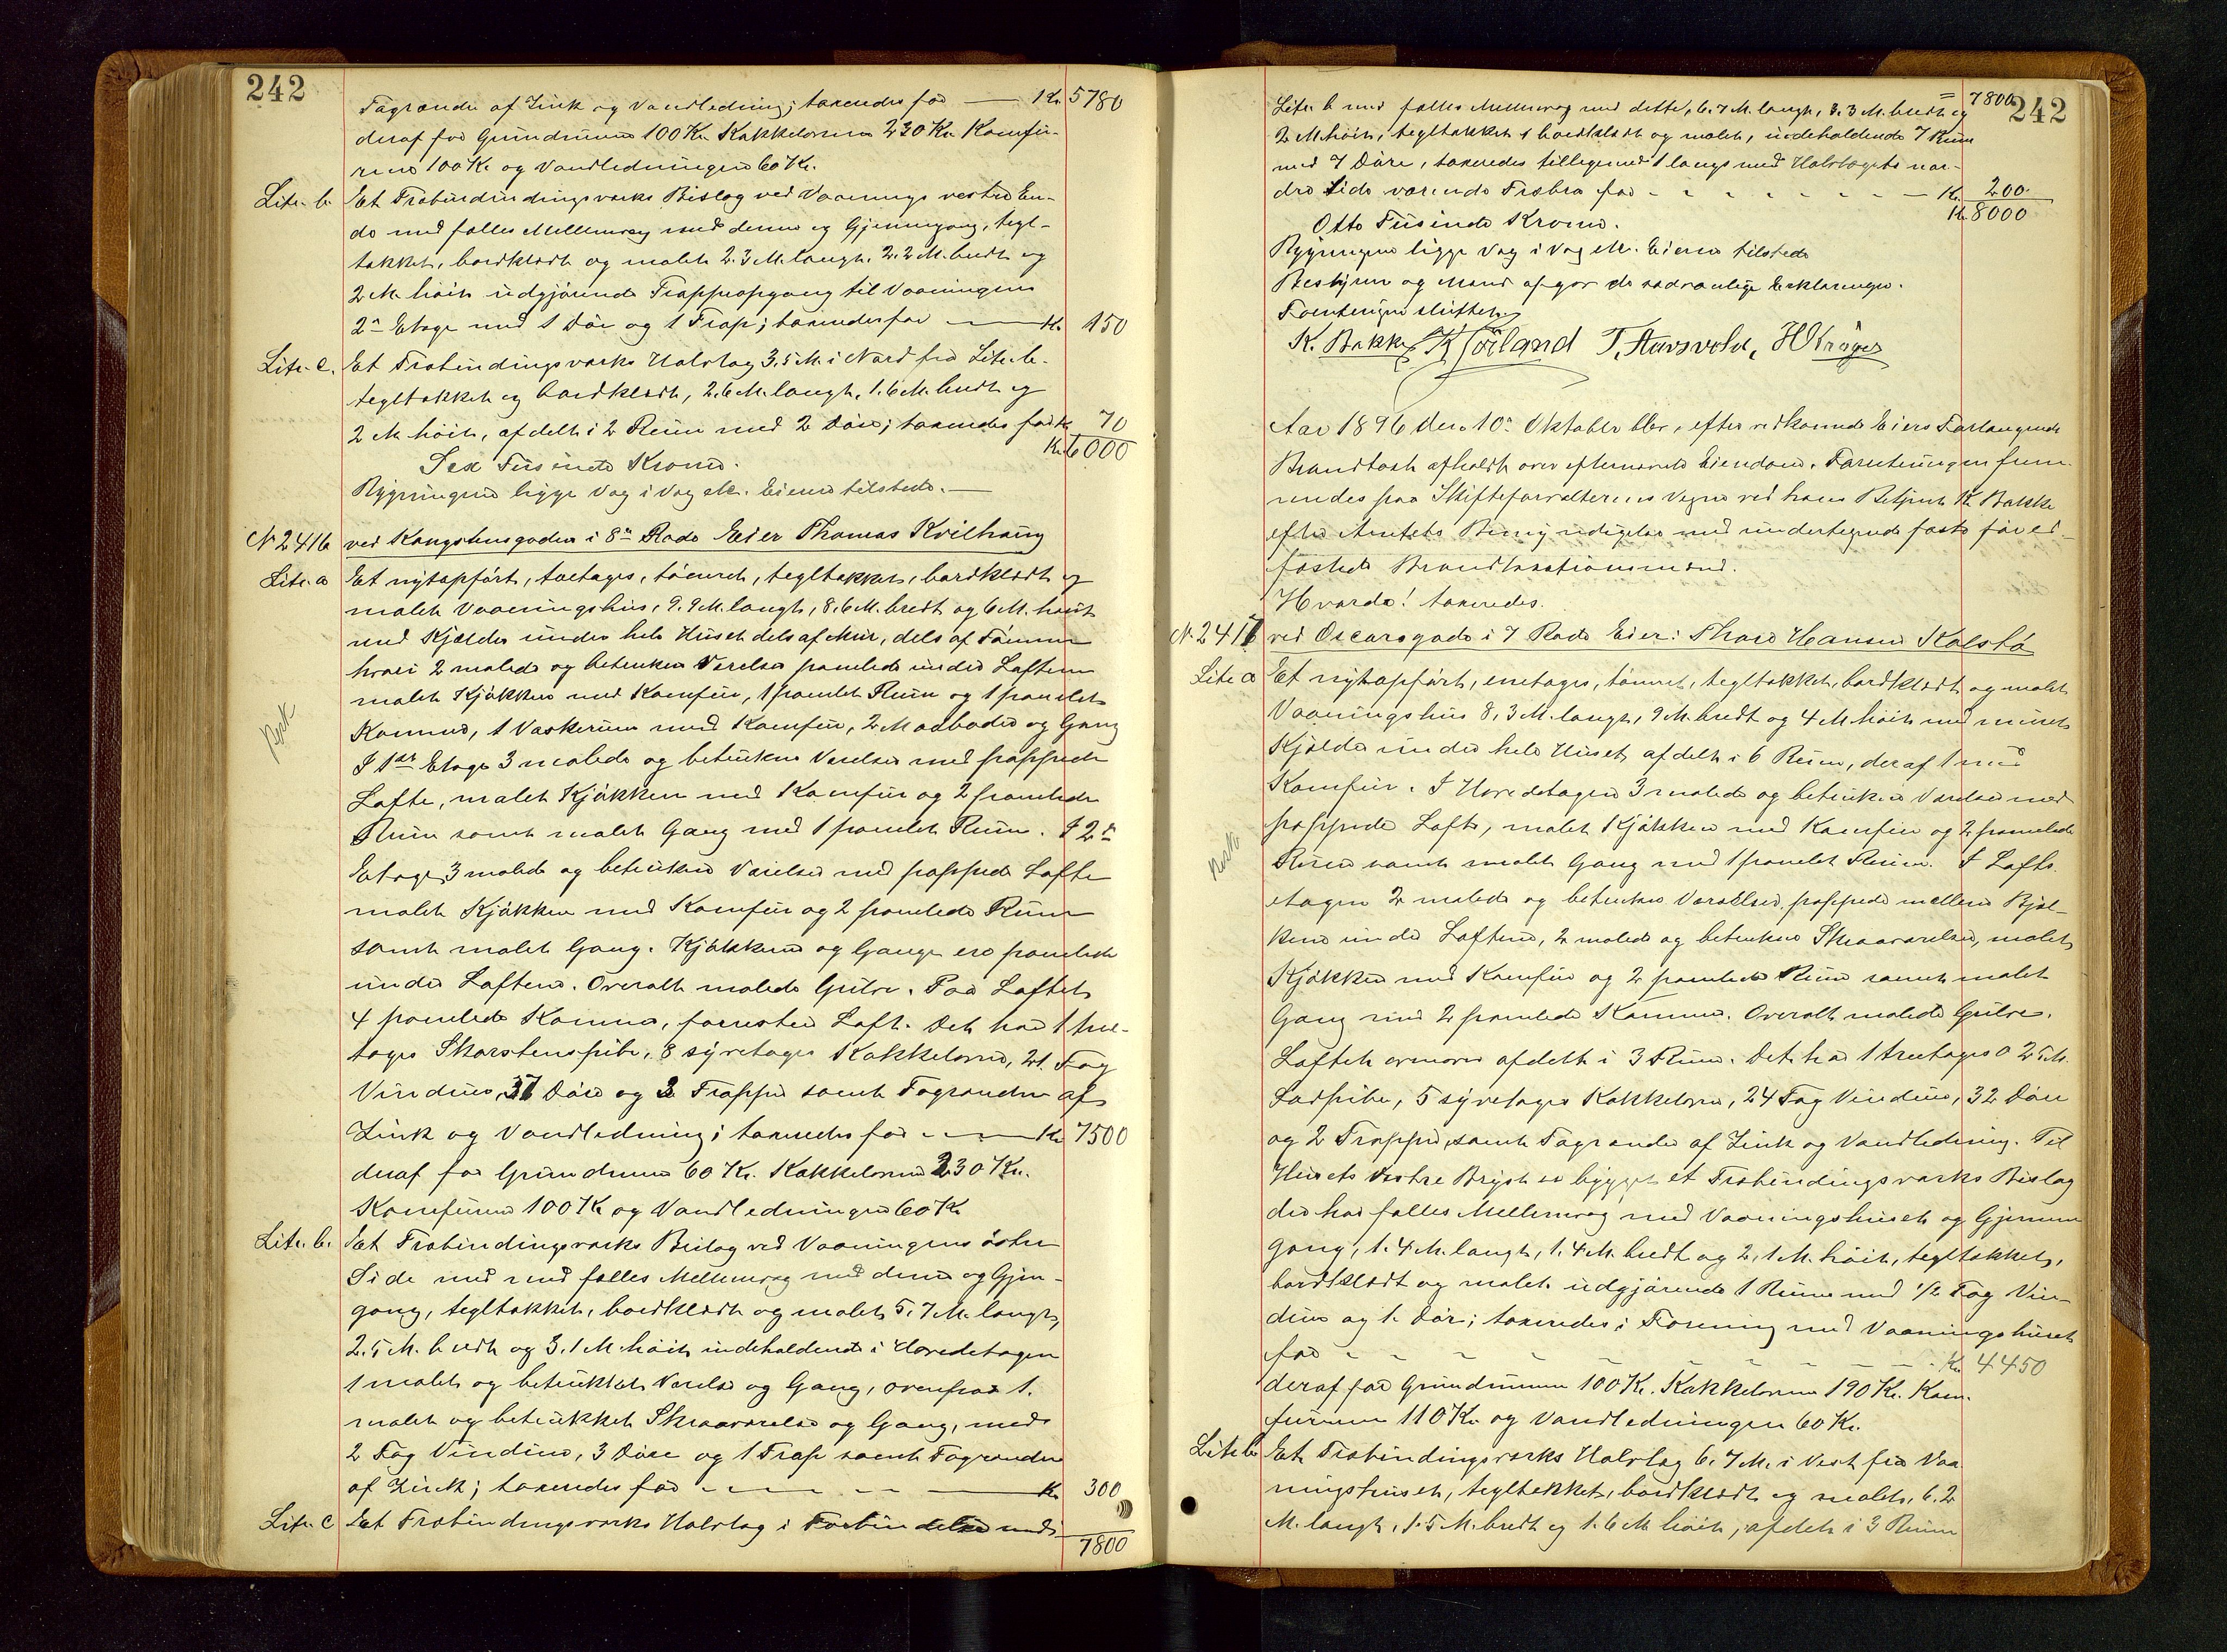 242
Tagrender af Zink og Vandledning; taxeredes for — Kr. 5780
deraf for Grundmuren 100 Kr. Kakkelovnene 220 Kr. Komfu-
rene 100 Kr. og Vandledningen 60 Kr.
Litr. b. Et Træbindingsværks Bislag ved Vaanings vestre En-
de med fælles Mellemvæg med denne og Gjennemgang, tegl-
takket, bordklædt og malet 2.3 M. langt, 2.2 M. bredt og
2 M. høit udgjørende Trappeopgang til Vaaningens
2den Etage med 1 Dør og 1 Trap; taxeredes for — Kr. 150
Litr. c. Et Træbindingsværks Halvtag 3,5 M. i Nord fra Litr. b.
tegltakket og bordklædt, 2.6 M. langt, 1.6 M. bredt og
2 M. høit, afdelt i 2 Rum med 2 Døre; taxeredes for Kr. 70
Kr. 6000
Sex Tusinde Kroner.
Bygningene ligge Væg i Væg etc. Eieren tilstede. —
No 2416 ved Kongstensgaden i 8de Rode Eier Thomas Kvilhaug
Litr. a Et nyopført, toetages, tømret, tegltakket, bordklædt og
malet Vaaningshus, 9.9 M. langt, 8.6 M. bredt og 6 M. høit
med Kjælder under hele Huset dels af Mur, dels af Tømmer
hvori 2 malede og betrukne Værelser panelede under Loftene
malet Kjøkken med Komfur, 1 panelet Rum og 1 panelet
Kammer, 1 Vaskerum med Komfur, 2 Madboder og Gang
I 1ste Etage 3 malede og betrukne Værelser med pappede
Lofte, malet Kjøkken med Komfur og 2 panelede
Rum samt malet Gang med 1 panelet Rum. I 2den
Etage 3 malede og betrukne Værelser med pappede Lofte
malet Kjøkken med Komfur og 2 panelede Rum
samt malet Gang. Kjøkkener og Gange ere panelede
under Loftene. Overalt malede Gulve. Paa Loftet
4 panelede Kammer, forresten Loft. Det har 1 tre-
tages Skorstenspibe, 8 syretages Kakkelovne, 21 Fag
Vinduer, 37 Døre og 3 Trapper samt Tagrender af
Zink og Vandledning; taxeredes for — Kr. 7500
deraf for Grundmuren 60 Kr. Kakkelovnene 230 Kr.
Komfurene 100 Kr og Vandledningen 60 Kr
Litr. b. Et Træbindingsværks Bislag ved Vaaningens østre
Side med med fælles Mellemvæg med denne og Gjen-
gang, tegltakket, bordklædt og malet 5,7 M. langt,
2.5 M. bredt og 3.1 M. høit indeholdende i Hovedetagen
1 malet og betrukket Værelse og Gang, ovenpaa 1.
malet og betrukket Skraaværelse og Gang, med
2 Fag Vinduer, 3 Døre og 1 Trap samt Tagrender
af Zink; taxeredes for — Kr. 300
Litr. c Et Træbindingsværks Halvtag i Forbindelse med
7800
Rest
242
= 7800
Litr. b med fælles Mellemvæg med dette, 6.7 M. langt, 3.3 M. bredt og
2 M. høit, tegltakket, bordklædt og malet, indeholdende 7 Rum
med 7 Døre, taxeredes tilligemed 1 langs med Halvtagets nor-
dre Side værende Træbro for — Kr. 200
Kr. 8000
Otto Tusinde Kroner.
Bygningene ligge Væg i Væg etc. Eieren tilstede
Bestyrer og Mænd afgav de sædvanlige Erklæringer.
Forretningen sluttet.
K. Bakke K Joiland T. Aarsvold, H Krøger
Aar 1896 den 10de Oktober blev, efter vedkommende Eiers Forlangende
Brandtaxt afholdt over efternævnte Eiendom. Forretningen frem-
medes paa Skifteforvalterens Vegne ved hans Betjent K. Bakke
efter Amtets Bemyndigelse med undertegnede faste før ed-
fæstede Brandtaxationsmænd.
Hvorda! taxeredes.
No 2417 ved Oscarsgade i 7 Rode Eier: Thore Hansen Kalstø
Litr. a Et nyopført, enetages, tømret, tegltakket, bordklædt og malet
Vaaningshus 8,3 M. langt, 9 M. bredt og 4 M. høit med muret
Kjælder under hele Huset afdelt i 6 Rum, deraf 1 med
Komfur. I Hovedetagen 3 malede og betrukne Værelser med
pappede Lofte, malet Kjøkken med Komfur og 2 panelede
Rum samt malet Gang med 1 panelet Rum. I Lofts-
etagen 2 malede og betrukne Værelser, pappede mellem Bjæl-
kene under Loftene, 2 malede og betrukne Skraaværelser, malet
Kjøkken med Komfur og 2 panelede Rum samt malet
Gang med 2 panelede Kammer. Overalt malede Gulve.
Loftet ovenover afdelt i 3 Rum. Det har 1 treetages 0 25 M.
Ladpibe, 5 syretages Kakkelovne, 24 Fag Vinduer, 32 Døre
og 2 Trapper, samt Tagrender af Zink og Vandledning. Til
Husets Vestre Bryst er bygget et Træbindingsværks Bislag
der har fælles Mellemvæg med Vaaningshuset og Gjennem-
gang, 1.4 M. langt, 1.4 M. bredt og 2.1 M. høit, tegltakket,
bordklædt og malet udgjørende 1 Rum med 1/2 Fag Vin-
duer og 1 Dør; taxeredes i Forening med Vaaningshuset
for — Kr. 4450
deraf for Grundmuren 100 Kr. Kakkelovnene 190 Kr. Kom-
furene 110 Kr. og Vandledningen 60 Kr.
Litr. b. Et Træbindingsværks Halvtag 6.7 M. i Vest fra Vaa-
ningshuset, tegltakket, bordklædt og malet, 6.2
M. langt, 1.5 M. bredt og 1.6 M. høit, afdelt i 3 Rum
Rest